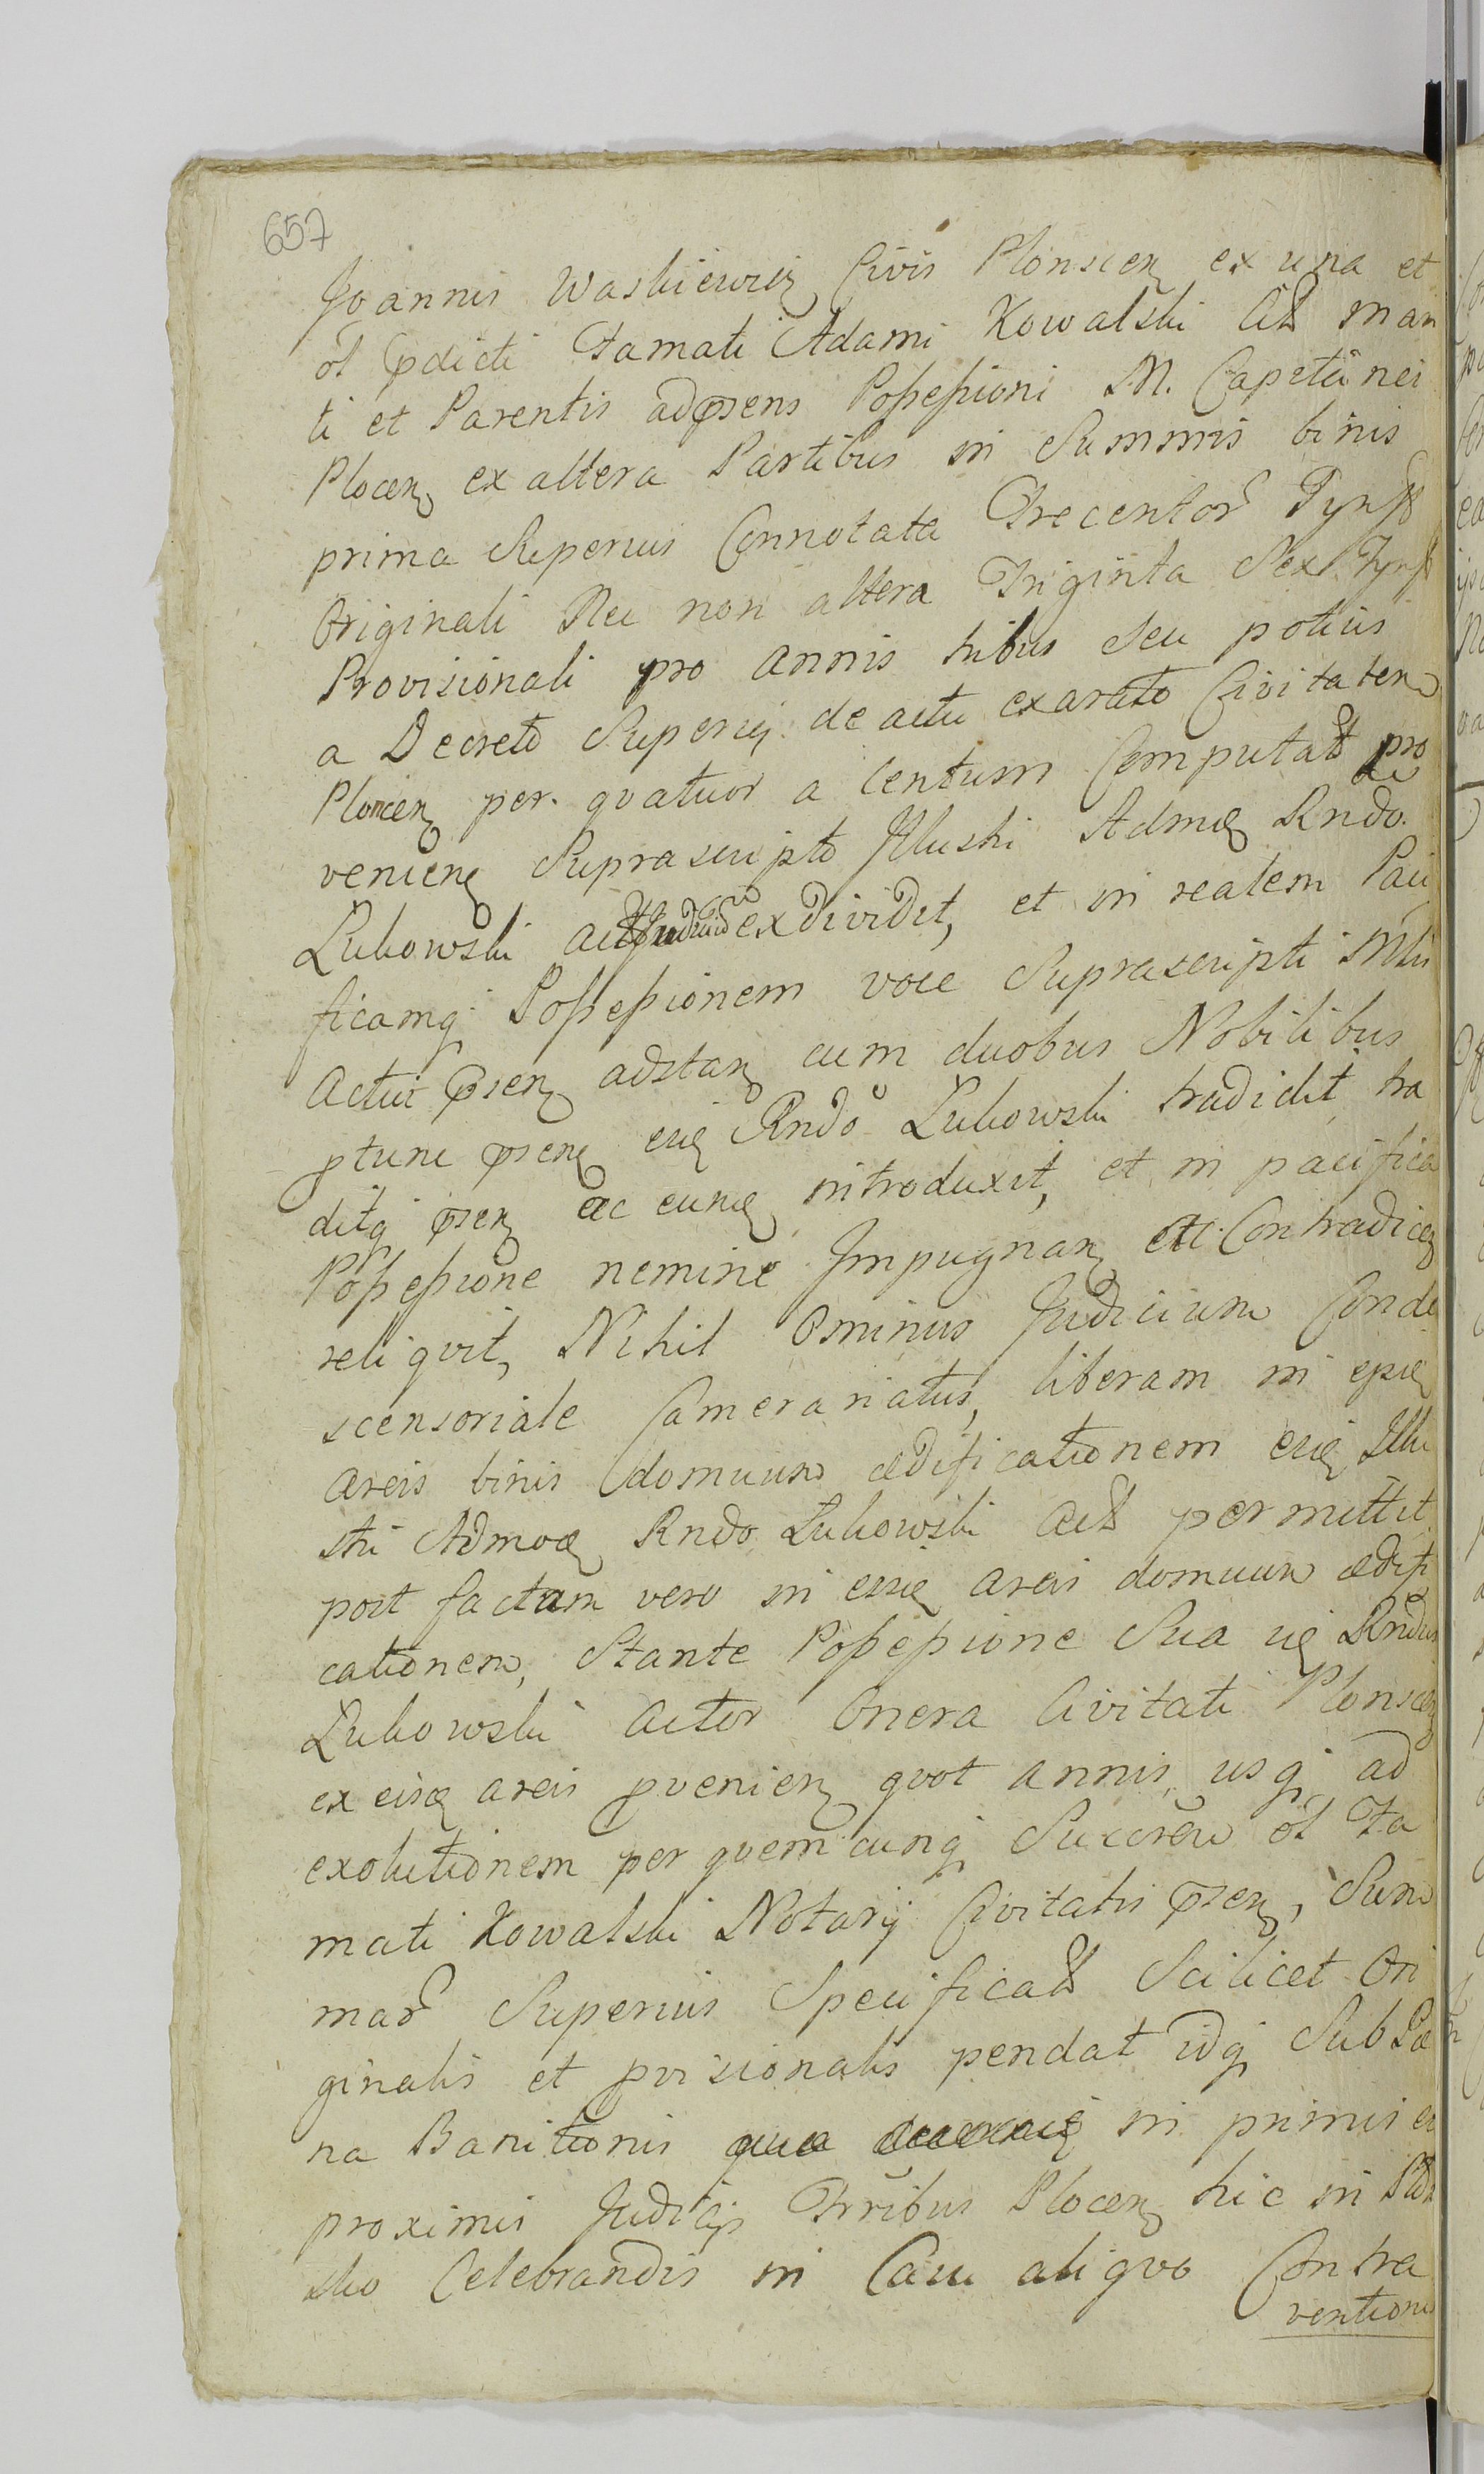 657
Joannis Waskiewicz Civis Plonscen ex una et
ol prdicti Famati Adami Kowalski Act man
ti et Parentis ad prsens Possessioni M. Capitanei
Plocen ex altera Partibus in Summis binis
prima Superius Connotata Trecentor Tynff
Originali Nec non altera Triginta Sex Tynff
Provisionali pro annis tribus Seu potius
a Decreto Superius de actu exarato Civitatem
Plonscen per quatuor a Centum Computat pro
venien Suprascripto Illustri Admo Rndo
Lukowski exdividit, et in realem Paci
ficamq Possessionem voce Suprascripti Mtri
Actui prsen adstan cum duobus Nobilibus
ptunc prsen eid Rndo Lukowski tradidit tra
ditq prsen ac eund introduxit, et in pacifica
Possessione nemine Impugnan etc Contradicen
reliqvit, Nihil Ominus Judicium Conde
scensoriale Camerariatus, liberam in
areis binis domuum ædificationem eid Illu
stri Admod Rndo Lukowski Act permittit
post factam vero in eisd areis domuum ædifi
cationem, Stante Possessione Sua id Rndus
Lukowski Actor Onera Civitati Plonscen
ex eisd areis pvenien qvot annis usq ad
exolutionem per qvemcunq Succrem ol Fa
mati Kowalski Notarij Civitatis prsen, Sum
mar Superius Specificat Scilicet Ori
ginalis et pvisionalis pendat idq Sub Pæ
na Banitionis in primis et
proximis Judicijs Trribus Plocen hic in
sko Celebrandis in Casu aliqvo Contra
ventionis